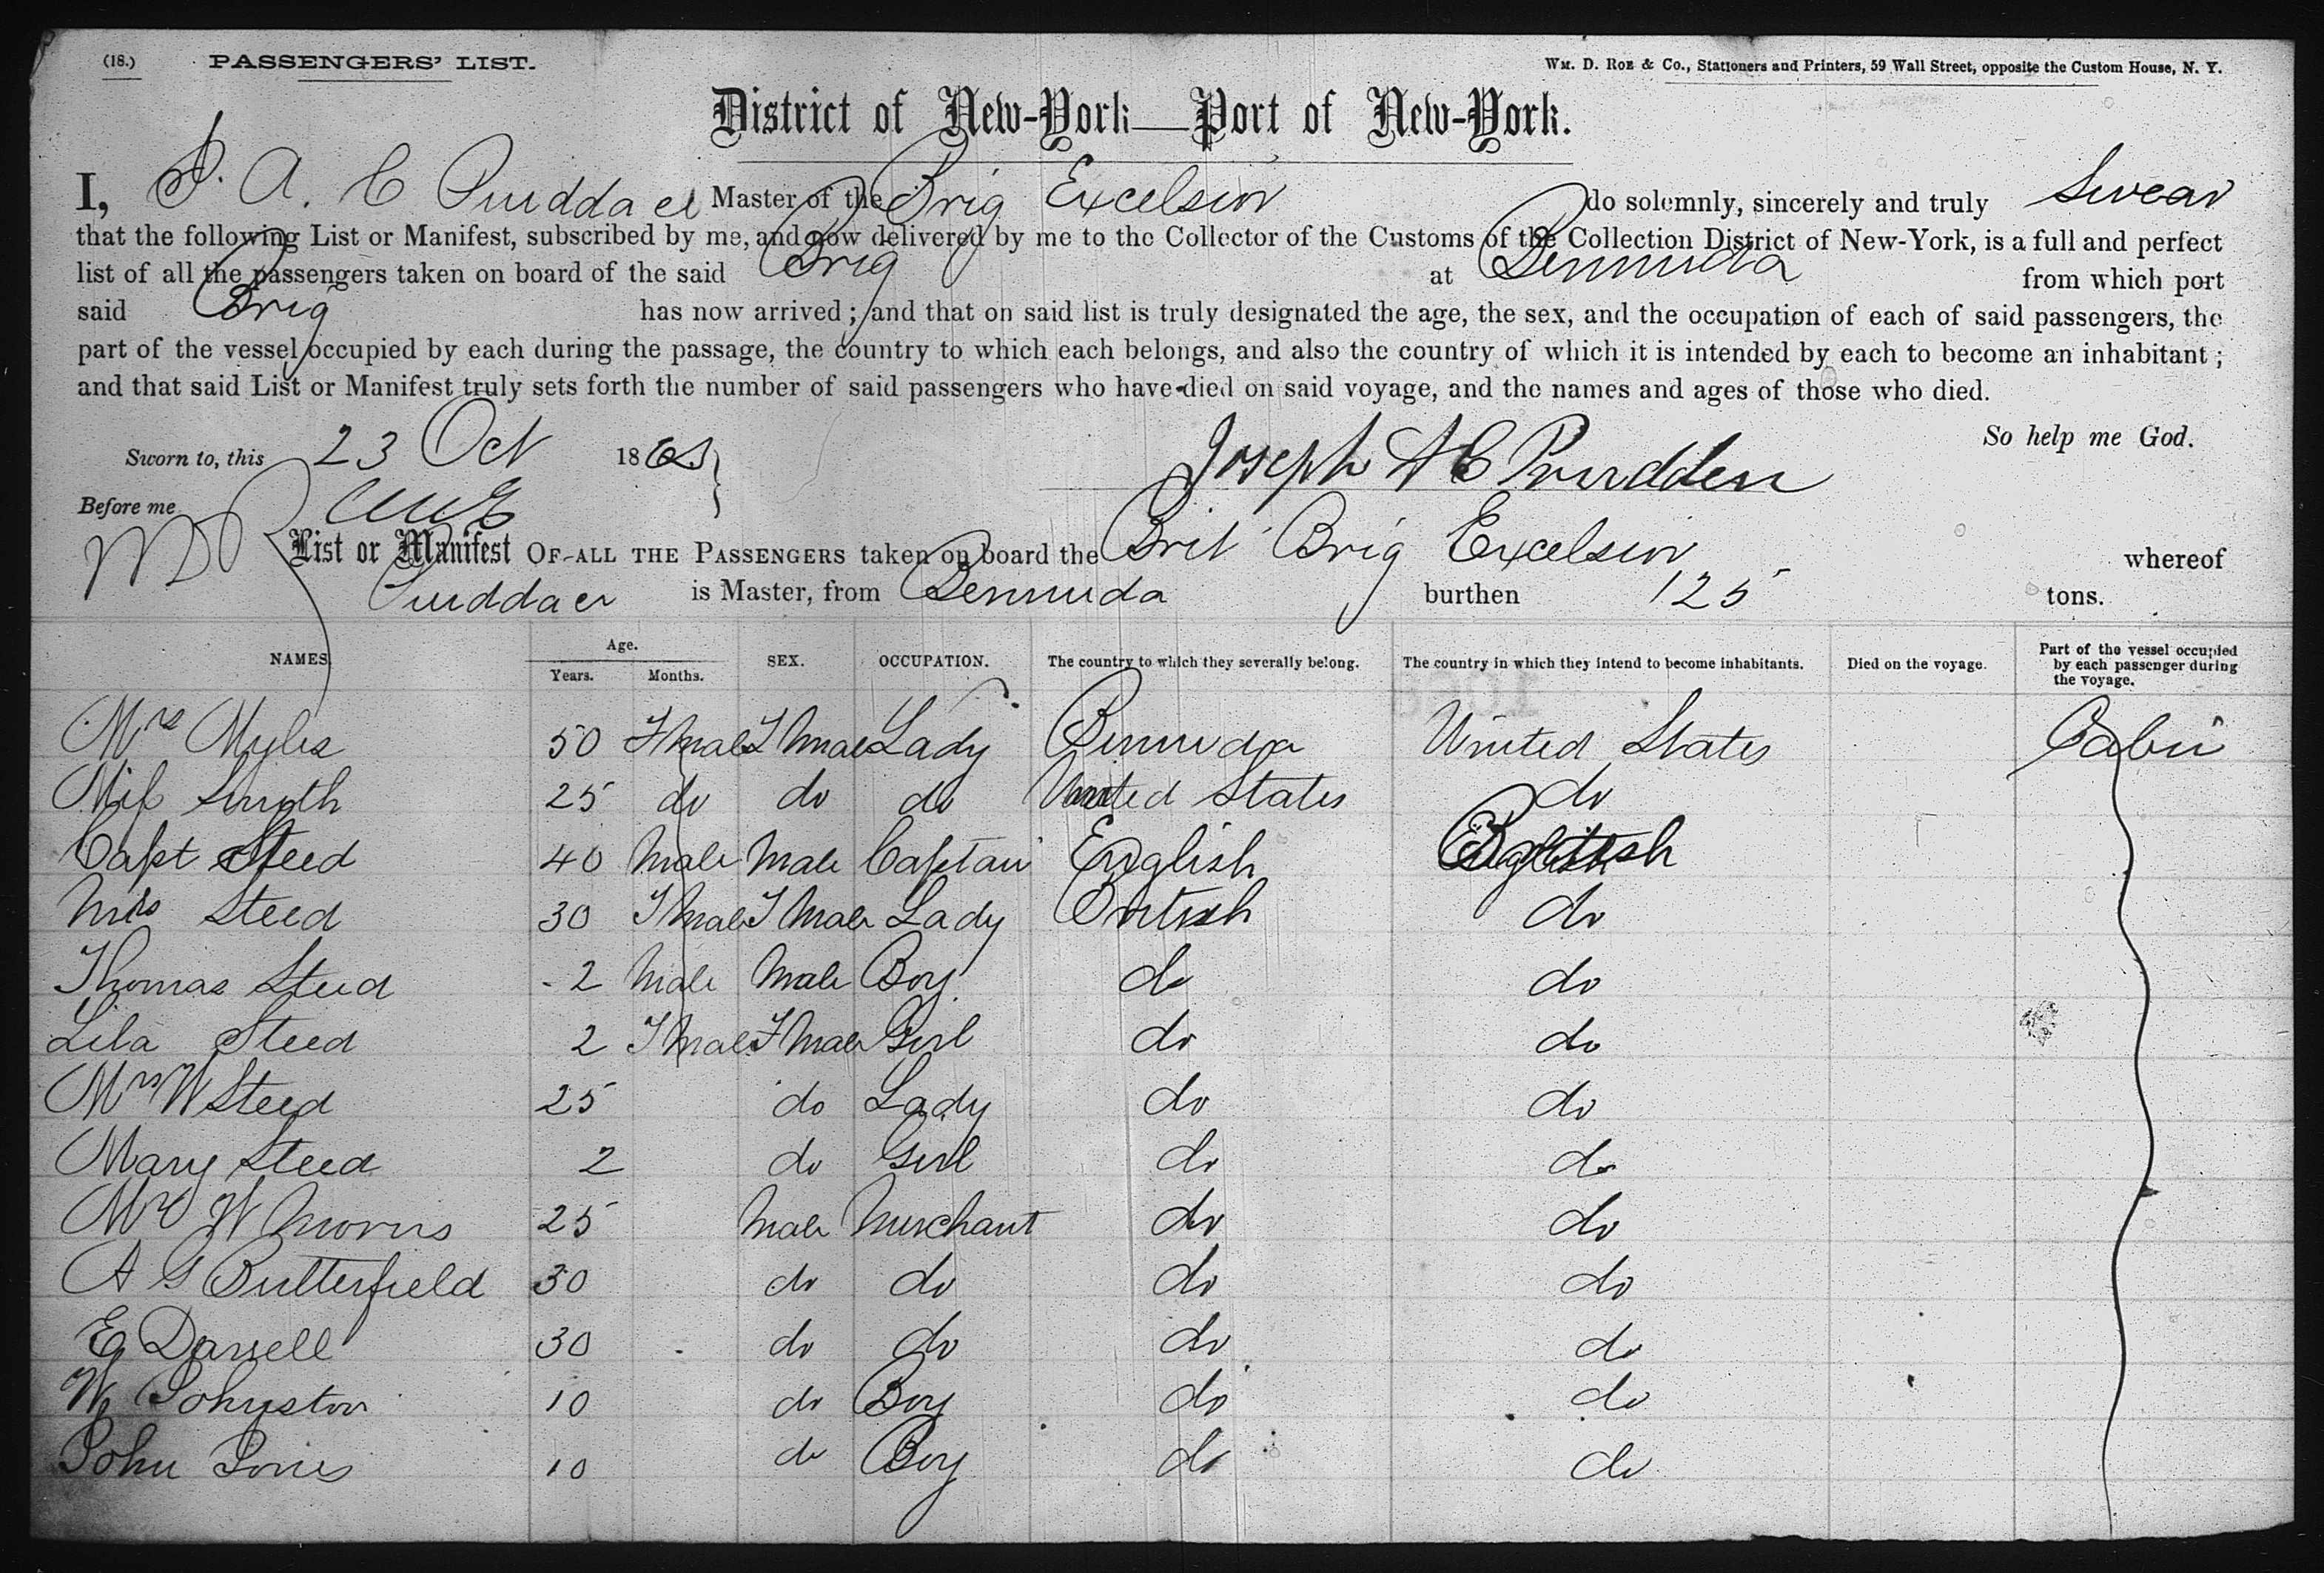 (18.) PASSENGERS' LIST. Wm. D. Roe & Co., Stationers and Printers, 59 Wall Street, opposite the Custom House, N. Y.
District of New-York—Port of New-York.
I, J. A. C Puddaer Master of the Brig Excelsior do solemnly, sincerely and truly Swear
that the following List or Manifest, subscribed by me, and now delivered by me to the Collector of the Customs of the Collection District of New-York, is a full and perfect
list of all the passengers taken on board of the said Brig at Bermuda from which port
said Brig has now arrived; and that on said list is truly designated the age, the sex, and the occupation of each of said passengers, the
part of the vessel occupied by each during the passage, the country to which each belongs, and also the country of which it is intended by each to become an inhabitant;
and that said List or Manifest truly sets forth the number of said passengers who have died on said voyage, and the names and ages of those who died.
So help me God.
Sworn to, this 23 Oct 186
Joseph A C Prudden
Before me
List or Manifest OF ALL THE PASSENGERS taken on board the Brit Brig Excelsior whereof
Puddaer is Master, from Bermuda burthen 125 tons.
NAMES. Age. Years. Months. SEX. OCCUPATION. The country to which they severally belong. The country in which they intend to become inhabitants. Died on the voyage. Part of the vessel occupied by each passenger during the voyage.
Mrs Myles 50 Fmale Fmale Lady Bermuda United States Cabin
Miss Smyth 25 do do do United States do
Capt Steed 40 Male Male Captain English British
Mrs Steed 30 Fmale Fmale Lady British do
Thomas Steed 2 Male Male Boy do do
Lila Steed 2 Fmale Fmale Girl do do
Mrs W Steed 25 do Lady do do
Mary Steed 2 do Girl do do
Mr W Morris 25 Male Merchant do do
A G Butterfield 30 do do do do
E Darrell 30 do do do do
W Johnston 10 do Boy do do
John Jones 10 do Boy do do